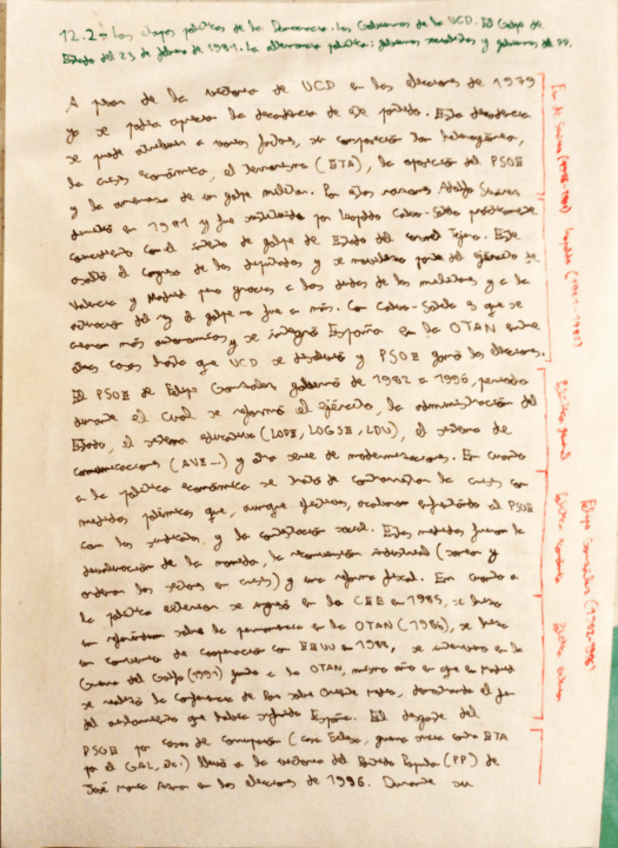 12.2- Las etapas políticas de la Democracia. Los Gobiernos de la UCD. El Golpe de
Estado del 23 de febrero de 1981. La alternancia política: gobiernos socialistas y gobiernos del PP.
A pesar de la victoria de UCD en las elecciones de 1979
ya se podía apreciar la decadencia de este partido. Esta decadencia
se puede atribuir a varios factores, su composición tan heterogénea,
la crisis económica, el terrorismo (ETA), la oposición del PSOE
y la amenaza de un golpe militar. Por estas razones Adolfo Suárez
dimitió en 1981 y fue sustituido por Leopoldo Calvo-Sotelo prácticamente
coincidiendo con el intento de golpe de Estado del coronel Tejero. Este
asaltó el congreso de los diputados y se movilizó parte del ejército de
Valencia y Madrid pero gracias a las dudas de los militares y a la
actuación del rey el golpe no fue a más. Con Calvo-Sotelo es que se
crearon más autonomías y se integró España en la OTAN entre
otras cosas hasta que UCD se disolvió y PSOE ganó las elecciones.
El PSOE de Felipe González gobernó de 1982 a 1996, periodo
durante el cual se reformó el ejército, la administración del
Estado, el sistema educativo (LODE, LOGSE, LDU), el sistema de
comunicaciones (AVE...) y otra serie de modernizaciones. En cuanto
a la política económica se trató de contrarrestar la crisis con
medidas polémicas que, aunque efectivas, acabaron enfrentando al PSOE
con los sindicatos y la contestación social. Estas medidas fueron la
devaluación de la moneda, la reconversión industrial (sanear y
ordenar los sectores en crisis) y una reforma fiscal. En cuanto a
la política exterior se ingresó en la CEE en 1985, se hizo
un referéndum sobre la permanencia en la OTAN (1986), se hizo
un convenio de cooperación con EEUU en 1988, se intervino en la
Guerra del Golfo (1991) junto a la OTAN, mismo año en que en Madrid
se realizó la Conferencia de Paz sobre Oriente Medio, demostrando el fin
del aislamiento que había sufrido España. El desgaste del
PSOE por casos de corrupción (caso Filesa, guerra sucia contra ETA
por el GAL, etc.) llevó a la victoria del Partido Popular (PP) de
José María Aznar en las elecciones de 1996. Durante su
Suárez
Leopoldo (1981-1982)
Política general
Política económica
Política exterior
Felipe González (1982-1996)